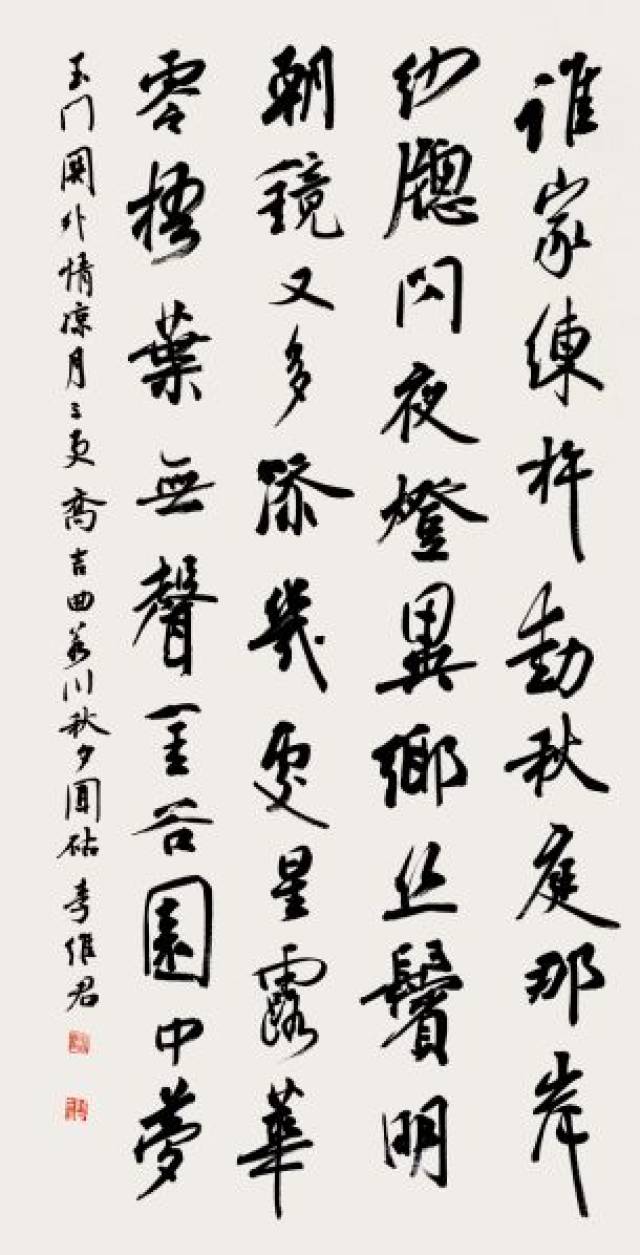 誰家練杵動秋庭那岸
紗牕閃夜燈異鄉丝鬢明
朝鏡又多添幾處星露華
零梧葉無聲金谷園中夢
玉门関外情凉月三更喬吉曲若川秋夕聞砧李維君